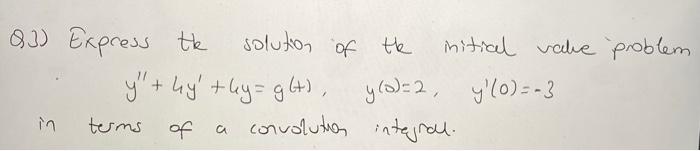 Q3) Express the solution of the initial value problem
y'' + 4y' + 4y = g(t), y(0)=2, y'(0)=-3
in terms of a convolution integral.